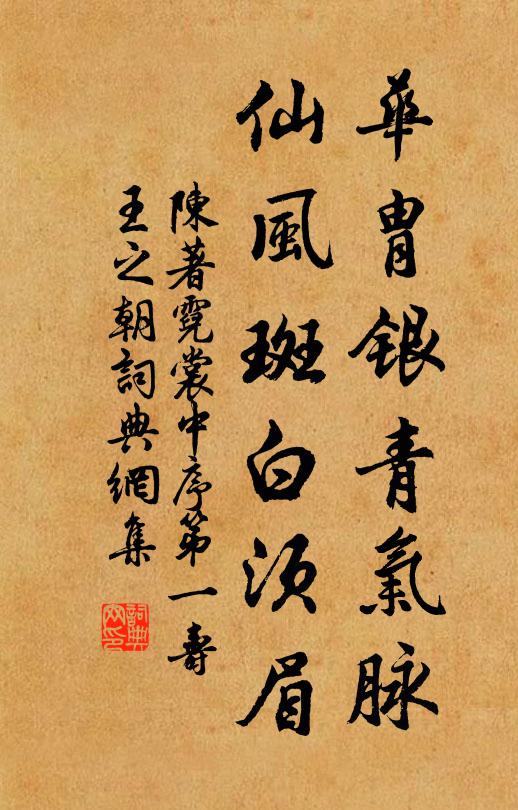 華胄銀青氣脉
仙風斑白須眉
陳著霓裳中序第一壽
王之朝詞典網集
詞典網印